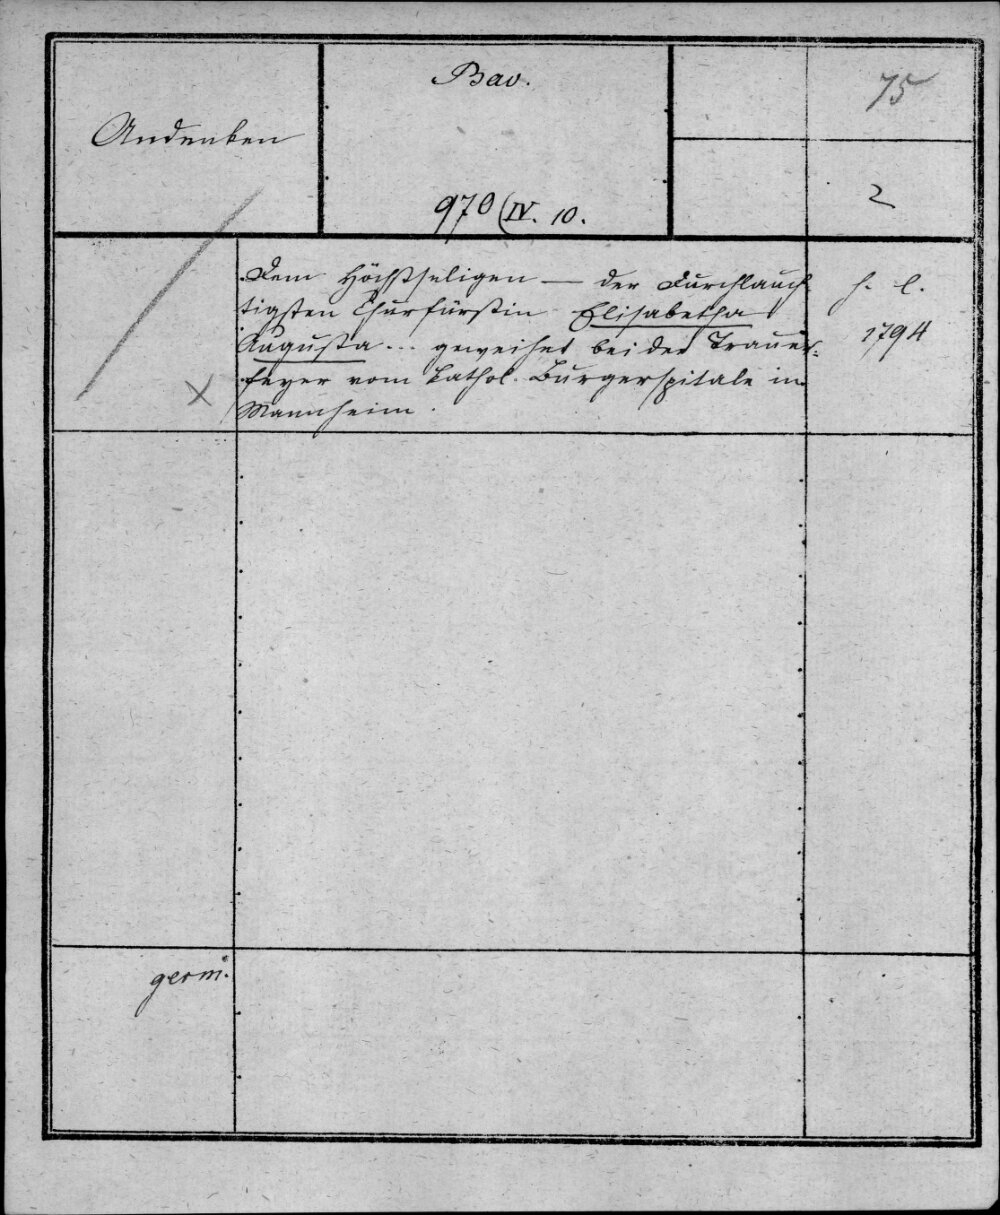 Bav.
75
Andenken
2
970 (IV. 10.
Dem Höchstseligen — der Durchlauch
tigsten Churfürstin Elisabetha
Augusta ... geweihet bei der Trauer-
feyer vom kathol. Bürgerspitale in
Mannheim.
s. l.
1794
X
germ.